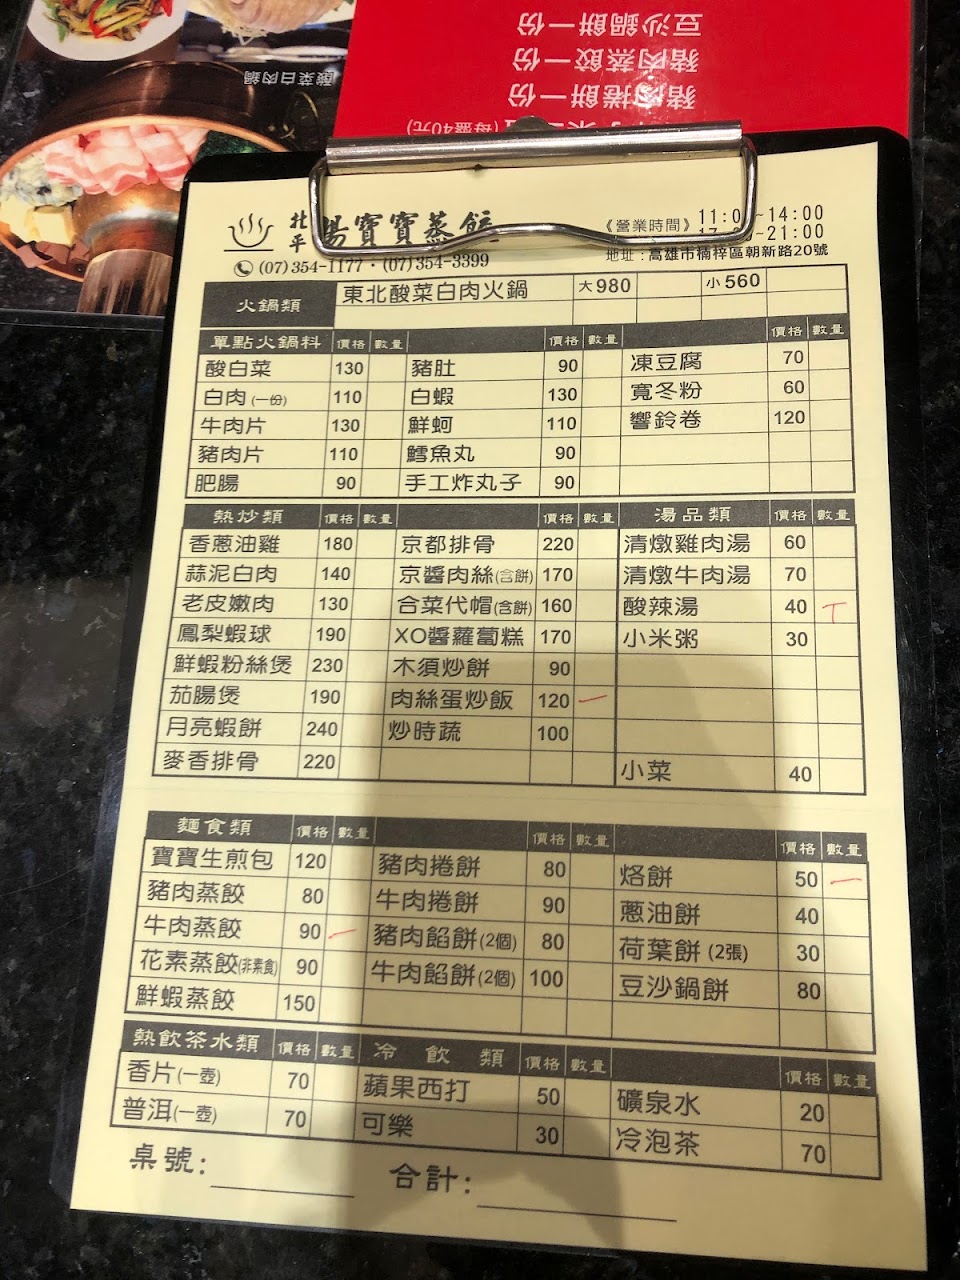 豆沙鍋餅一份
豬肉蒸餃一份
豬肉捲餅一份
(每盤40元)
酸菜白肉鍋
北平 楊寶寶蒸餃
《營業時間》 11:0 ~14:00
~21:00
(07)354-1177・(07)354-3399
地址:高雄市楠梓區朝新路20號
火鍋類 東北酸菜白肉火鍋 大980 小560
單點火鍋料 價格 數量 價格 數量 價格 數量
酸白菜 130 豬肚 90 凍豆腐 70
白肉(一份) 110 白蝦 130 寬冬粉 60
牛肉片 130 鮮蚵 110 響鈴卷 120
豬肉片 110 鱈魚丸 90
肥腸 90 手工炸丸子 90
熱炒類 價格 數量 價格 數量 湯品類 價格 數量
香蔥油雞 180 京都排骨 220 清燉雞肉湯 60
蒜泥白肉 140 京醬肉絲(含餅) 170 清燉牛肉湯 70
老皮嫩肉 130 合菜代帽(含餅) 160 酸辣湯 40 T
鳳梨蝦球 190 XO醬蘿蔔糕 170 小米粥 30
鮮蝦粉絲煲 230 木須炒餅 90
茄腸煲 190 肉絲蛋炒飯 120 一
月亮蝦餅 240 炒時蔬 100
麥香排骨 220 小菜 40
麵食類 價格 數量 價格 數量 價格 數量
寶寶生煎包 120 豬肉捲餅 80 烙餅 50 一
豬肉蒸餃 80 牛肉捲餅 90 蔥油餅 40
牛肉蒸餃 90 一 豬肉餡餅(2個) 80 荷葉餅(2張) 30
花素蒸餃(非素食) 90 牛肉餡餅(2個) 100 豆沙鍋餅 80
鮮蝦蒸餃 150
熱飲茶水類 價格 數量 冷飲類 價格 數量 價格 數量
香片(一壺) 70 蘋果西打 50 礦泉水 20
普洱(一壺) 70 可樂 30 冷泡茶 70
桌號: 合計: